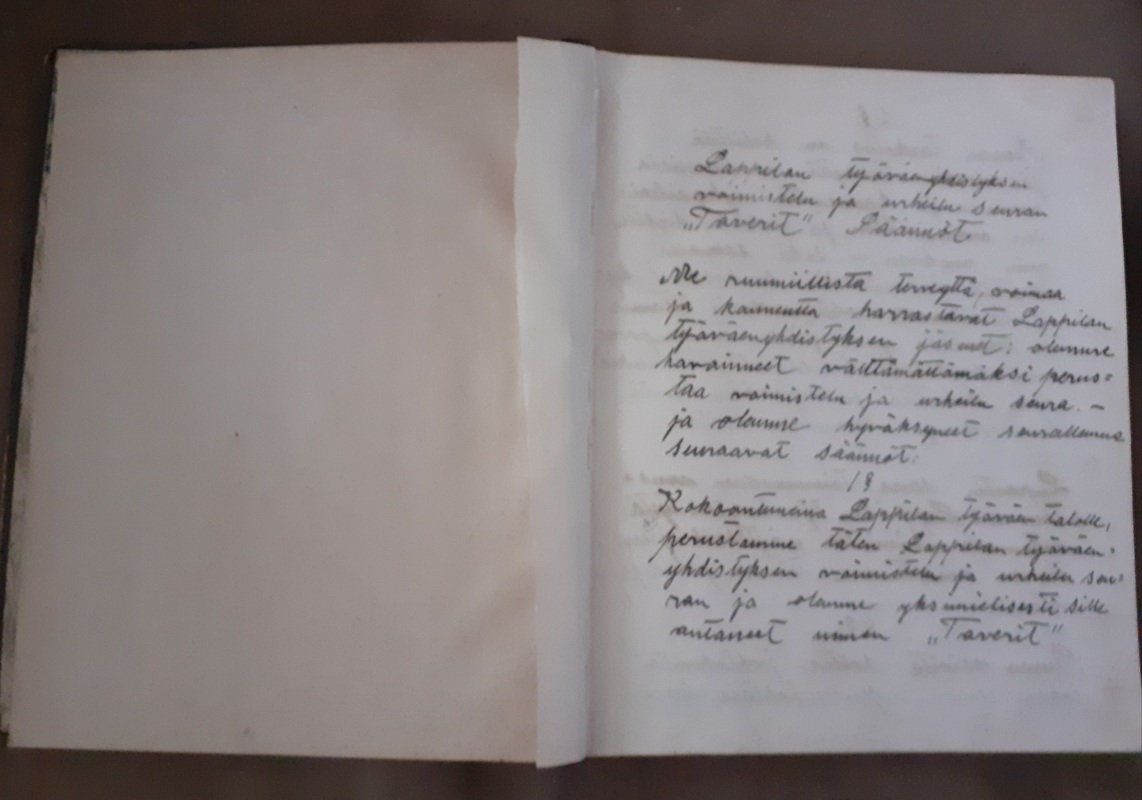 Lappilan työväenyhdistyksen
voimistelu ja urheilu seuran
„Toverit" Säännöt
Me ruumiillista terveyttä, voimaa
ja kauneutta harrastavat Lappilan
työväenyhdistyksen jäsenet; olemme
havainneet välttämättömäksi perus=
taa voimistelu ja urheilu seura. –
ja olemme hyväksyneet seurallemme
seuraavat säännöt:
1 §
Kokoontuneina Lappilan työväen talolle,
perustamme täten Lappilan työväen=
yhdistyksen voimistelu ja urheilu seu=
ran ja olemme yksimielisesti sille
antaneet nimen „Toverit"